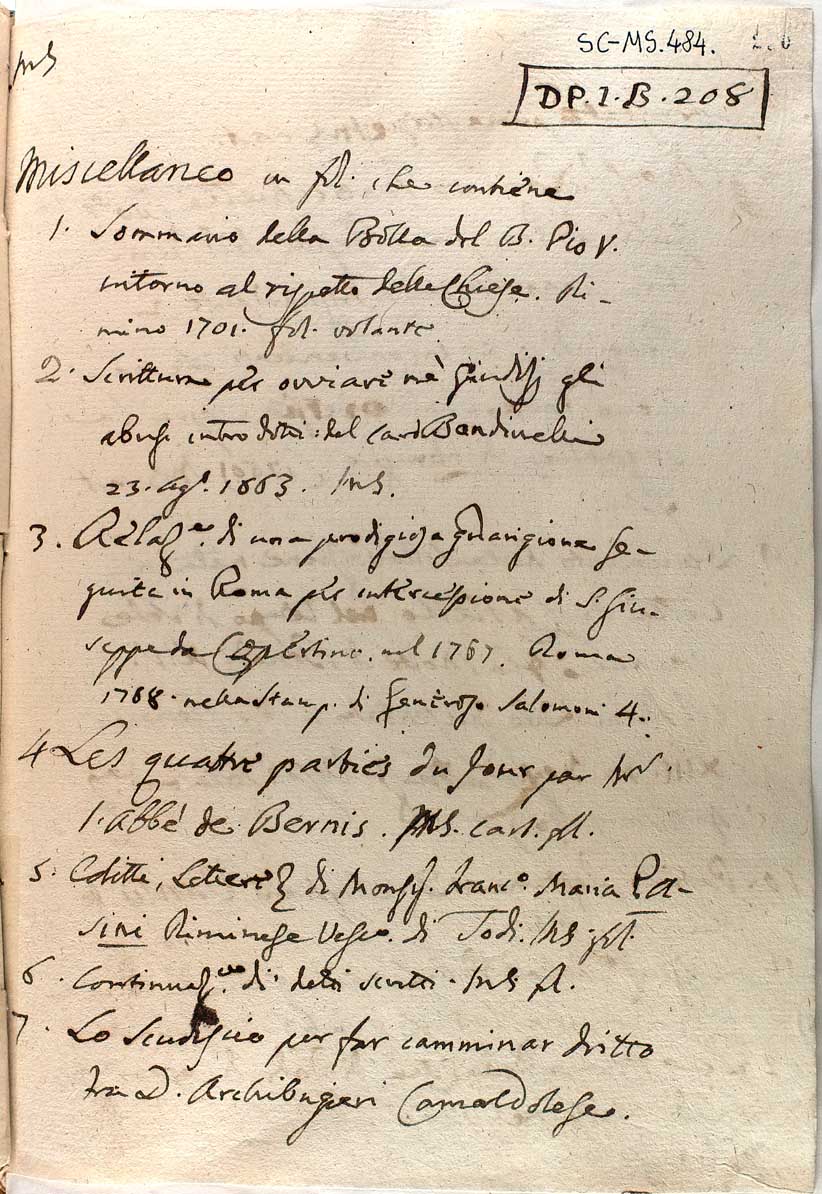 SC-MS.484.
MS
DP.I.B.208
Miscellaneo in fol. che contiene
1. Sommario della Bolla del B. Pio V.
intorno al rispetto delle Chiese. Ri-
mino 1701. fol. volante
2. Scritture per ovviare ne' Giudizj gli
abusi introdotti: del Card Bandinelli
23. Ag. 1663. MS.
3. Relaz.e di una prodigiosa guarigione se-
guita in Roma per intercessione di S. Giu-
seppe da Copertino nel 1767. Roma
1768. nella Stamp. di Generoso Salomoni 4.
4 Les quatre parties du Jour par Mr
l'Abbé de Bernis. MS. cart. fol.
5. Editti, Lettere di Monsig. Franc.o Maria Pa-
sini Riminese Vesco. di Todi. MS. fol.
6. Continuaz.ne di detti scritti. MS fol.
7. Lo Scudiscio per far camminar dritto
fra D. Archibugieri Camaldolese.